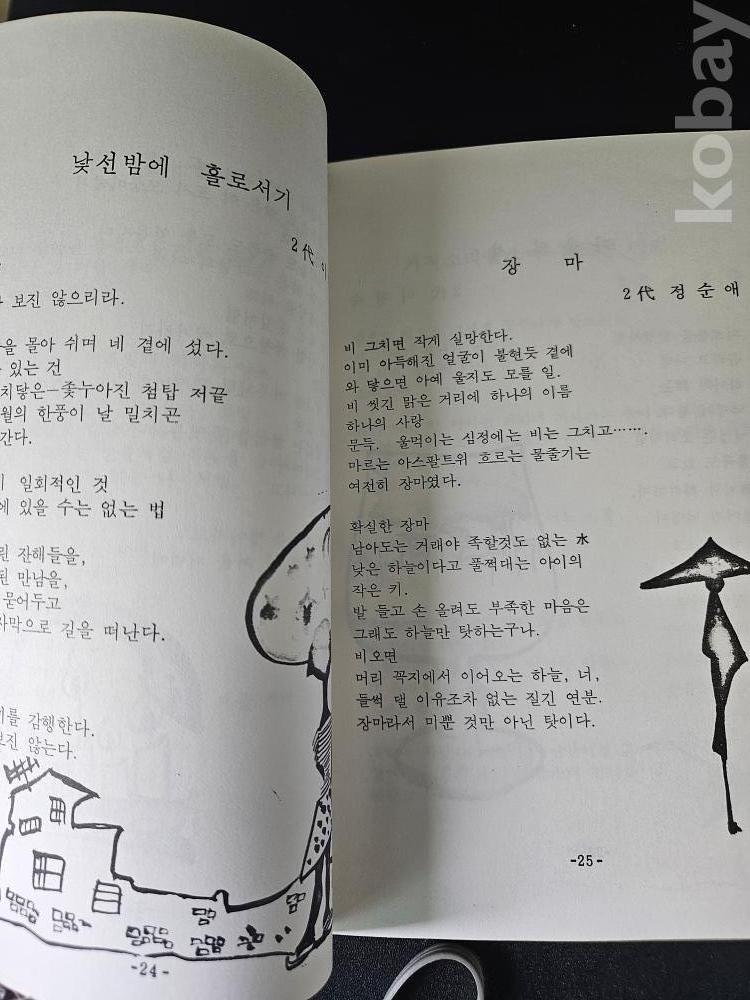 낯선밤에 홀로서기
2代
보진 않으리라.
을 몰아 쉬며 네 곁에 섰다.
있는 건
치닿은-좇누아진 첨탑 저끝
월의 한풍이 날 밀치곤
간다.
일회적인 것
에 있을 수는 없는 법
린 잔해들을,
된 만남을,
묻어두고
사막으로 길을 떠난다.
를 감행한다.
보진 않는다.
-24-
장 마
2代 정순애
비 그치면 작게 실망한다.
이미 아득해진 얼굴이 불현듯 곁에
와 닿으면 아예 울지도 모를 일.
비 씻긴 맑은 거리에 하나의 이름
하나의 사랑
문득. 울먹이는 심정에는 비는 그치고…….
마르는 아스팔트위 흐르는 물줄기는
여전히 장마였다.
확실한 장마
남아도는 거래야 족할것도 없는 水
낮은 하늘이다고 풀쩍대는 아이의
작은 키.
발 들고 손 올려도 부족한 마음은
그래도 하늘만 탓하는구나.
비오면
머리 꼭지에서 이어오는 하늘, 너,
들썩 댈 이유조차 없는 질긴 연분.
장마라서 미쁜 것만 아닌 탓이다.
-25-
kobay